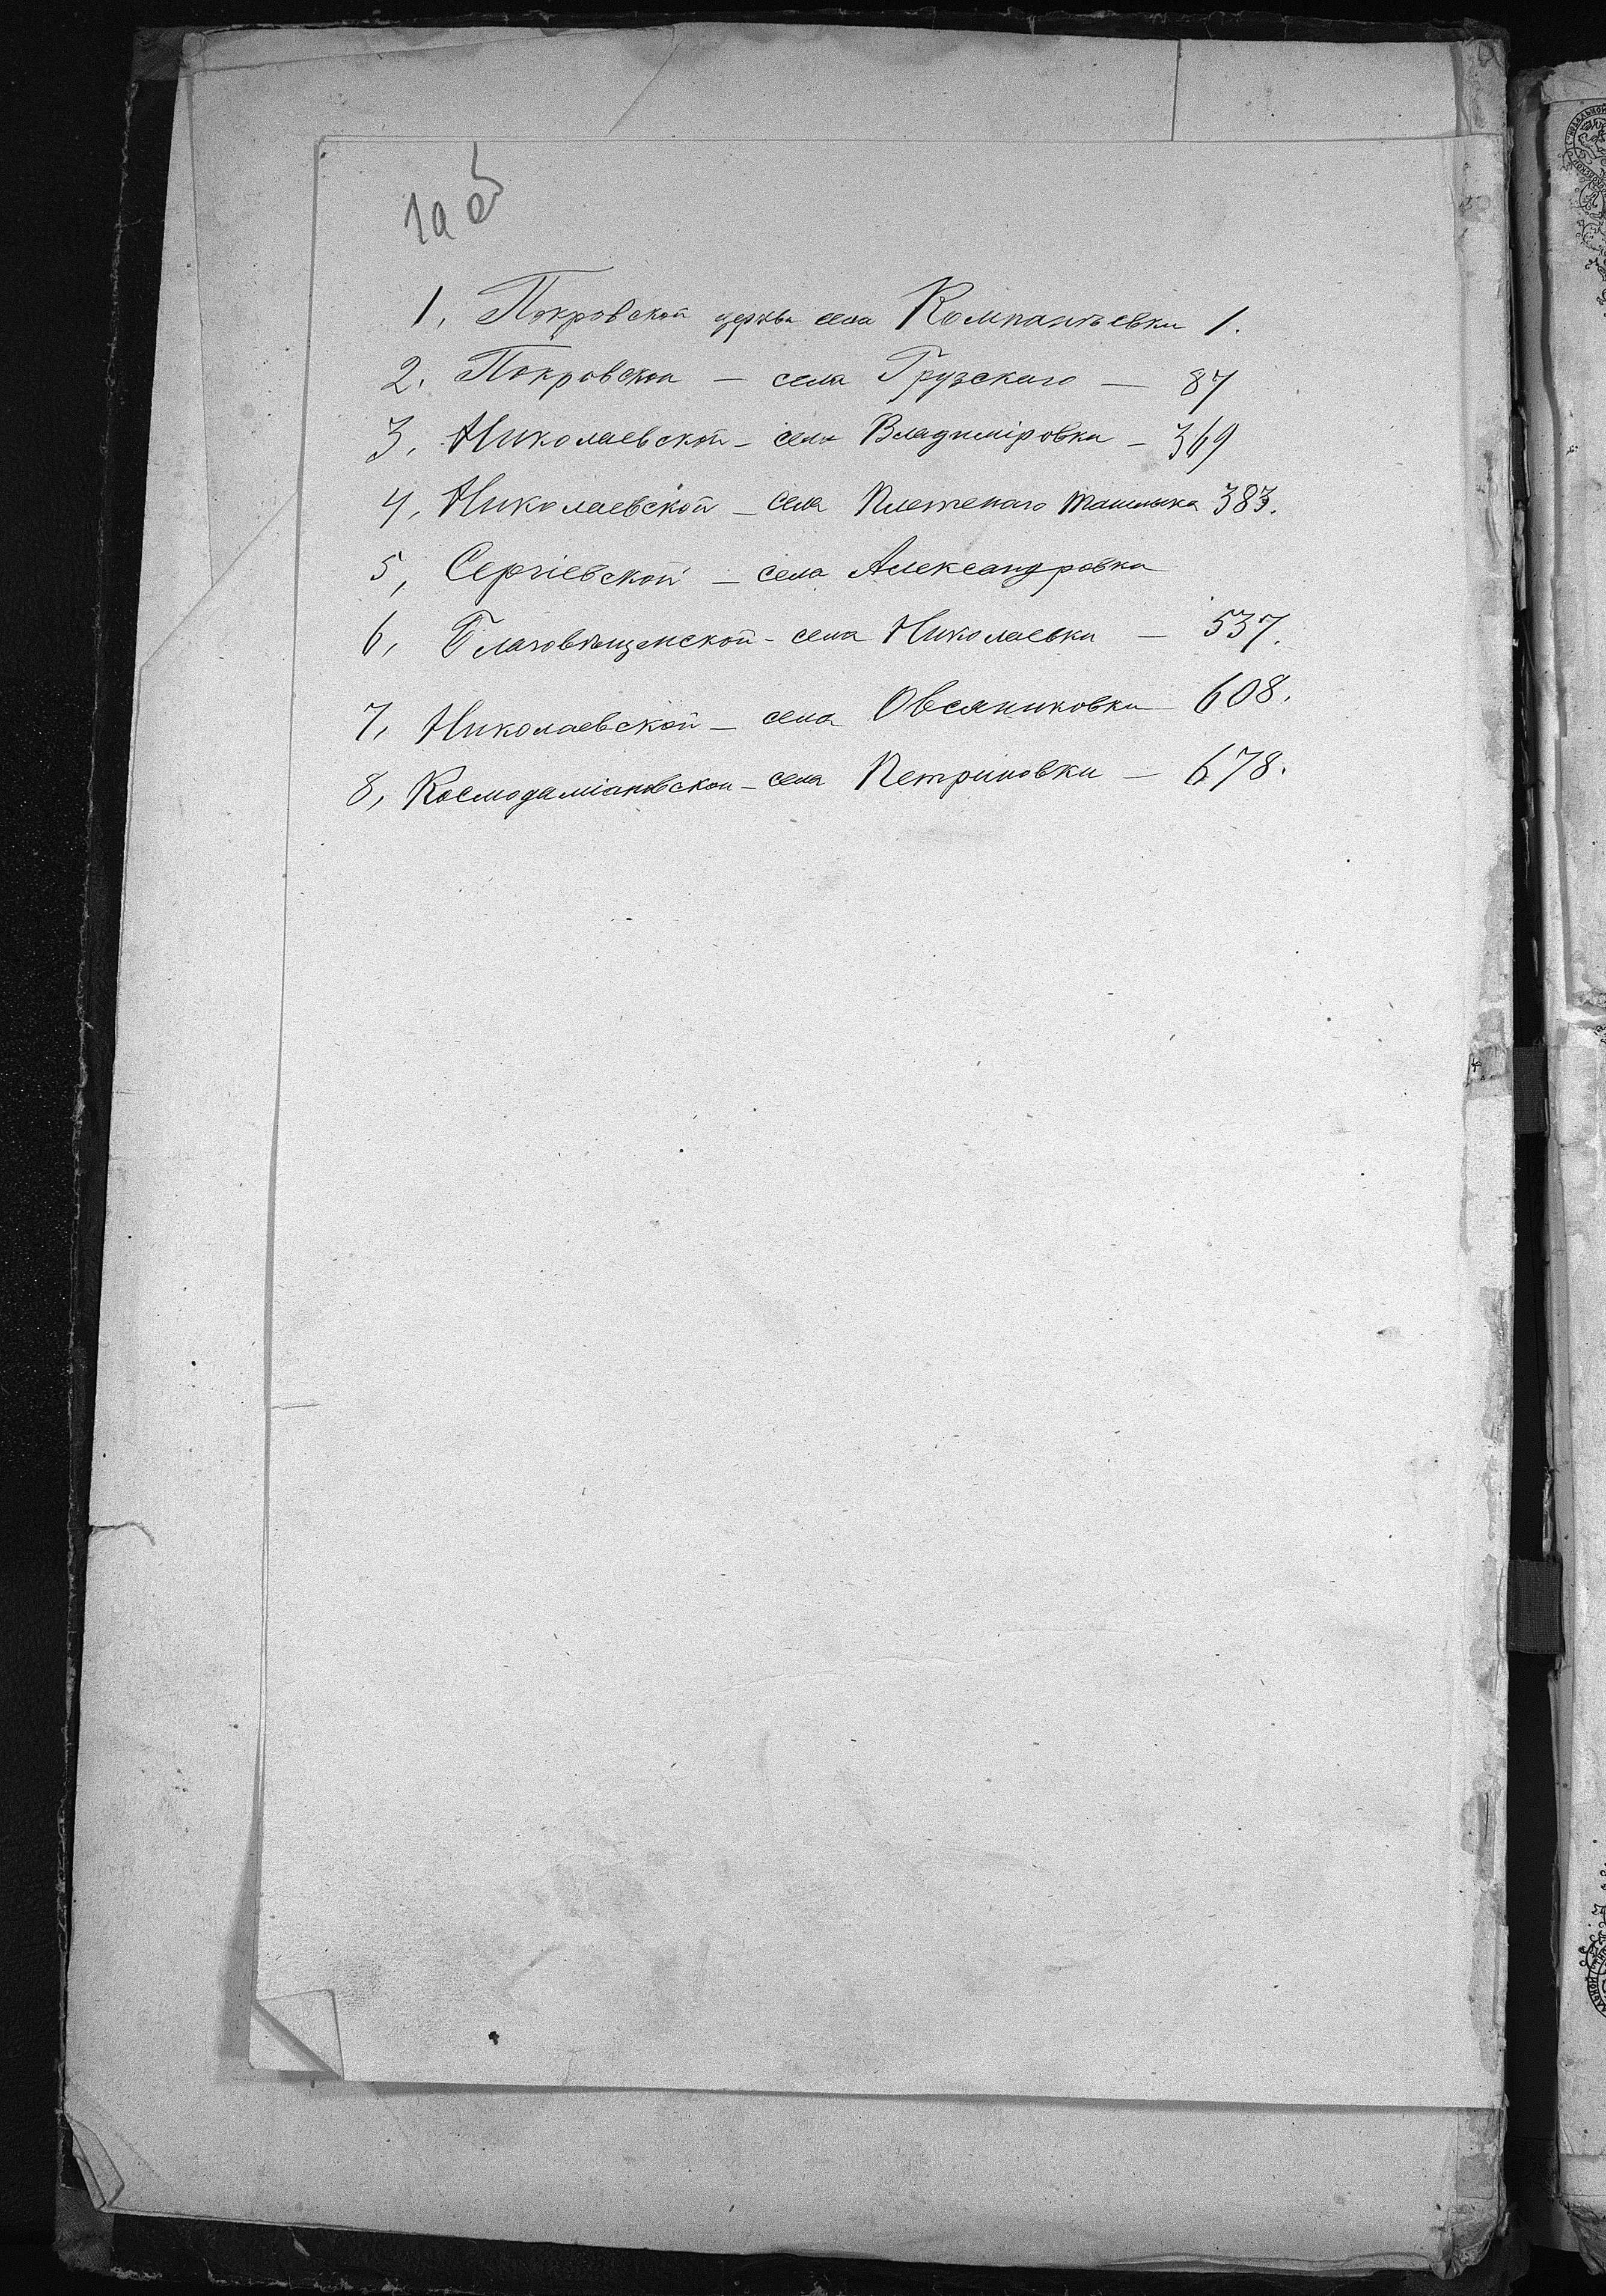 1а об
1, Покровской церкви села Компанѣевки 1.
2, Покровской — села Грузскаго — 87
3, Николаевской — села Владиміровки — 369
4, Николаевской — села Плетенаго Ташлыка 383.
5, Сергіевской — села Александровки
6, Благовѣщенской — села Николаевки — 537.
7, Николаевской — села Овсяниковки — 608.
8, Космодаміановской — села Петриковки — 678.